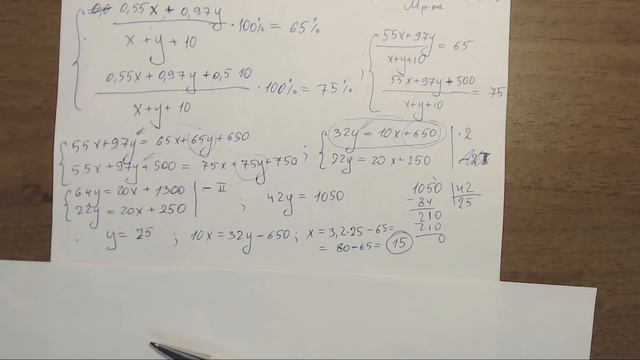 Mр-ра
{ 0,55x + 0,97y / x + y + 10 · 100% = 65%
0,55x + 0,97y + 0,5 · 10 / x + y + 10 · 100% = 75% ;
{ 55x + 97y / x+y+10 = 65
55x + 97y + 500 / x+y+10 = 75
{ 55x + 97y = 65x + 65y + 650
55x + 97y + 500 = 75x + 75y + 750 ;
{ 32y = 10x + 650 | · 2
22y = 20x + 250
{ 64y = 20x + 1300 | - II
22y = 20x + 250 ; 42y = 1050
1050 | 42
- 84 | 25
210
210
0
y = 25 ; 10x = 32y - 650 ; x = 3,2 · 25 - 65 =
= 80 - 65 = 15